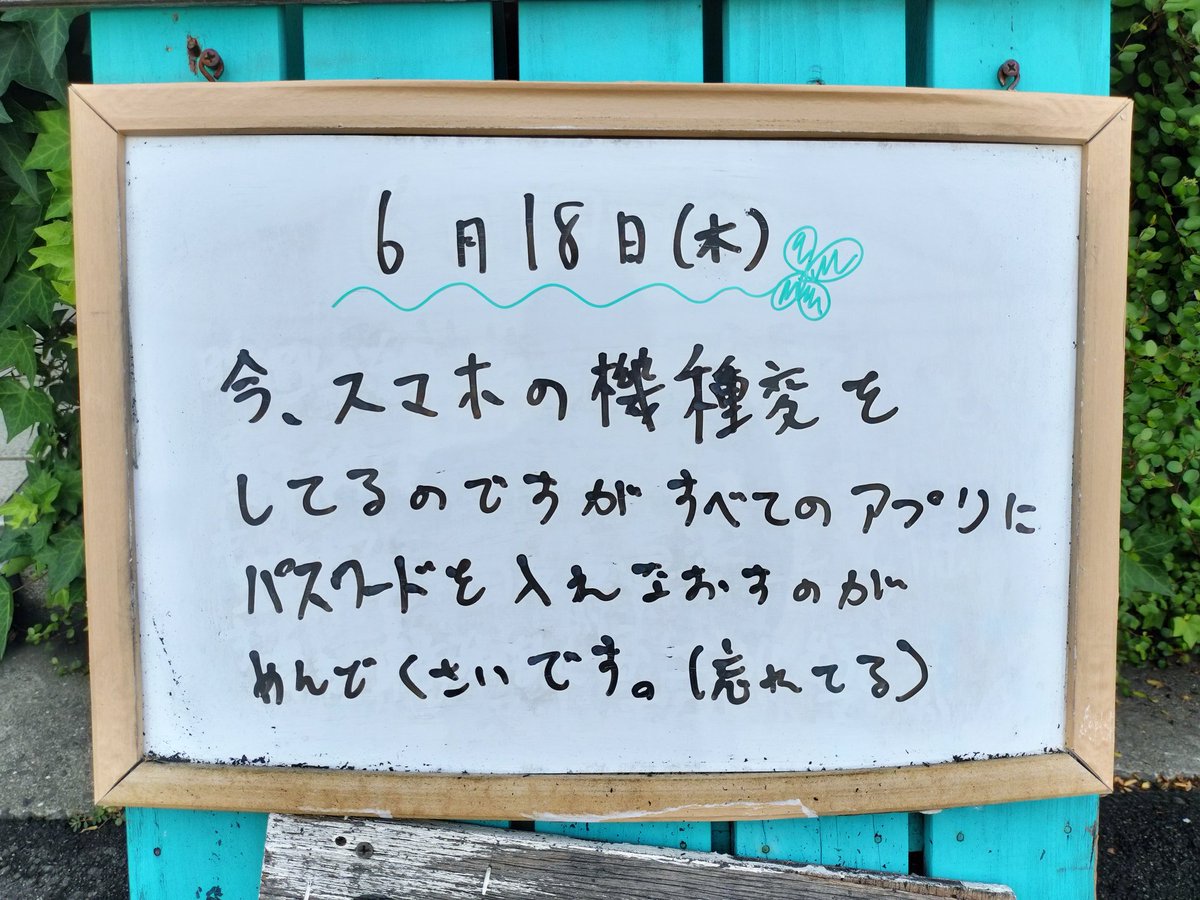 6月18日(木)
今、スマホの機種変を
してるのですがすべてのアプリに
パスワードを入れなおすのが
めんどくさいです。(忘れてる)